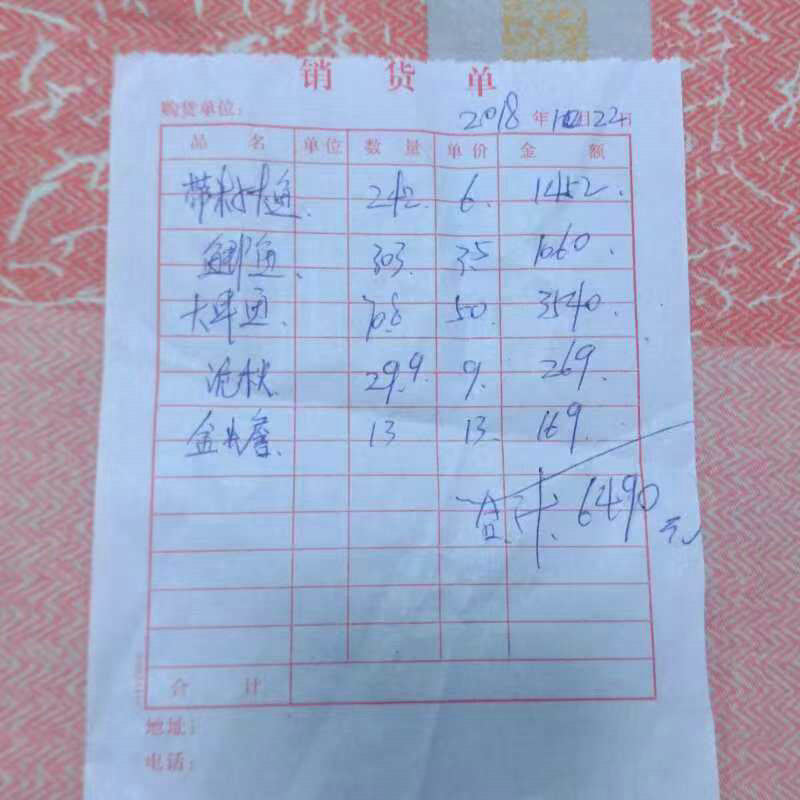 销 货 单
购货单位： 2018 年 月 22 日
品 名 单位 数 量 单价 金 额
242. 6. 1452.
鲫鱼. 303. 35 1060.
708 50. 3540.
29.9 9. 269.
13 13. 169.
合计. 6490 元
合 计
地址：
电话：